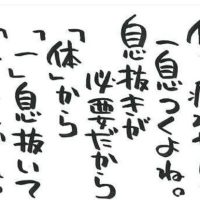 一息つくよね。
息抜きが
必要だから
「体」から
「一」息抜いて